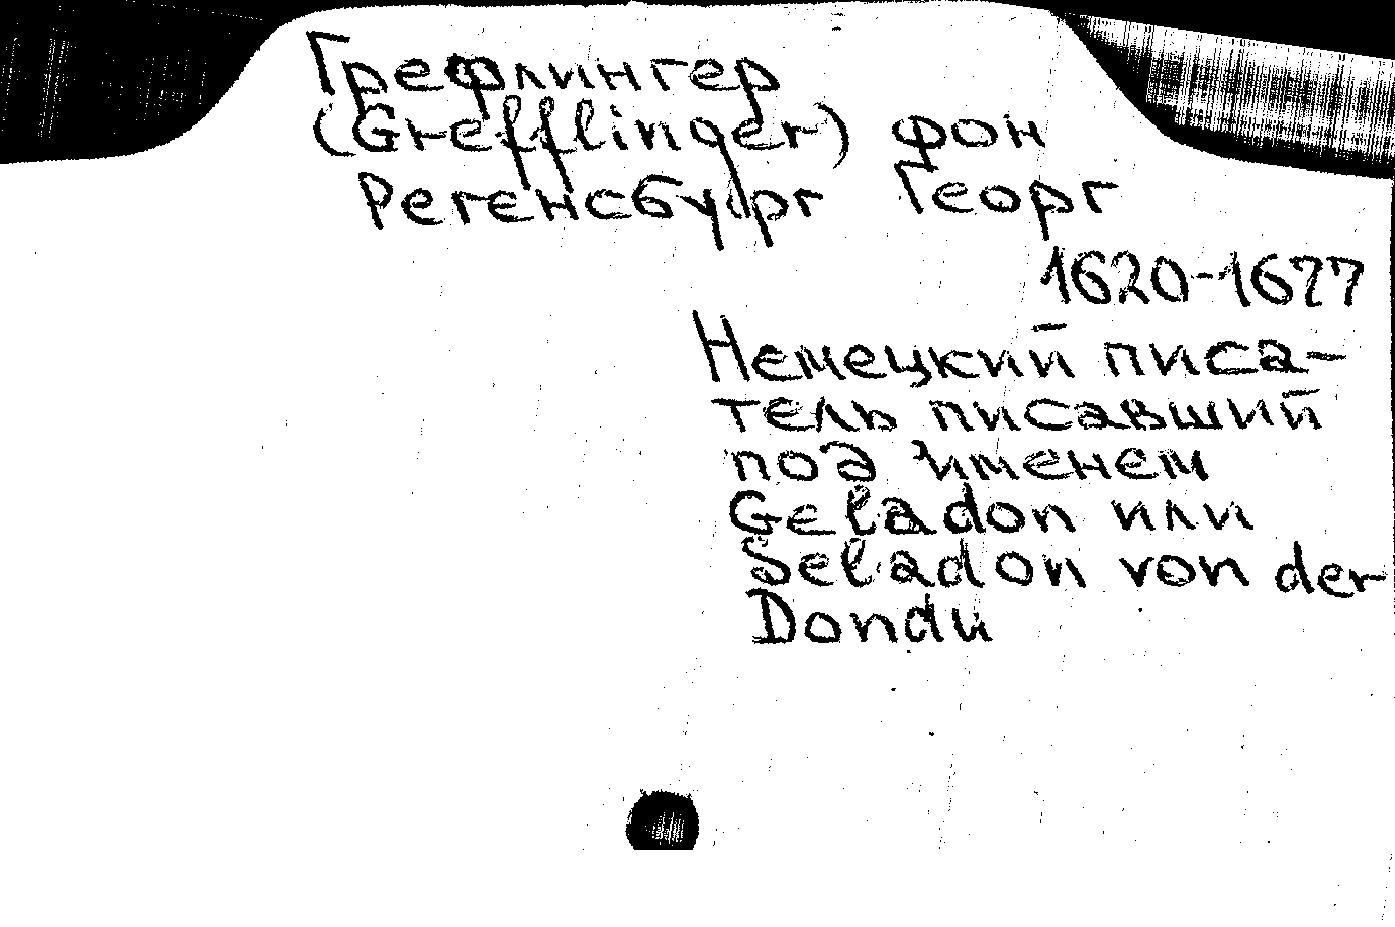 Грефлингер
(Grefflinger) фон
Регенсбург Георг
1620-1677
Немецкий писа-
тель писавший
под именем
Geladon или
Seladon von der
Dondu